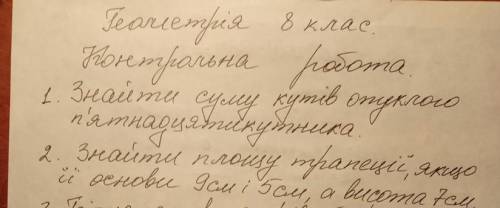 Геометрія 8 клас.
Контрольна робота.
1. Знайти суму кутів опуклого
п'ятнадцятикутника.
2. Знайти площу трапеції, якщо
її основи 9см і 5см, а висота 7см.